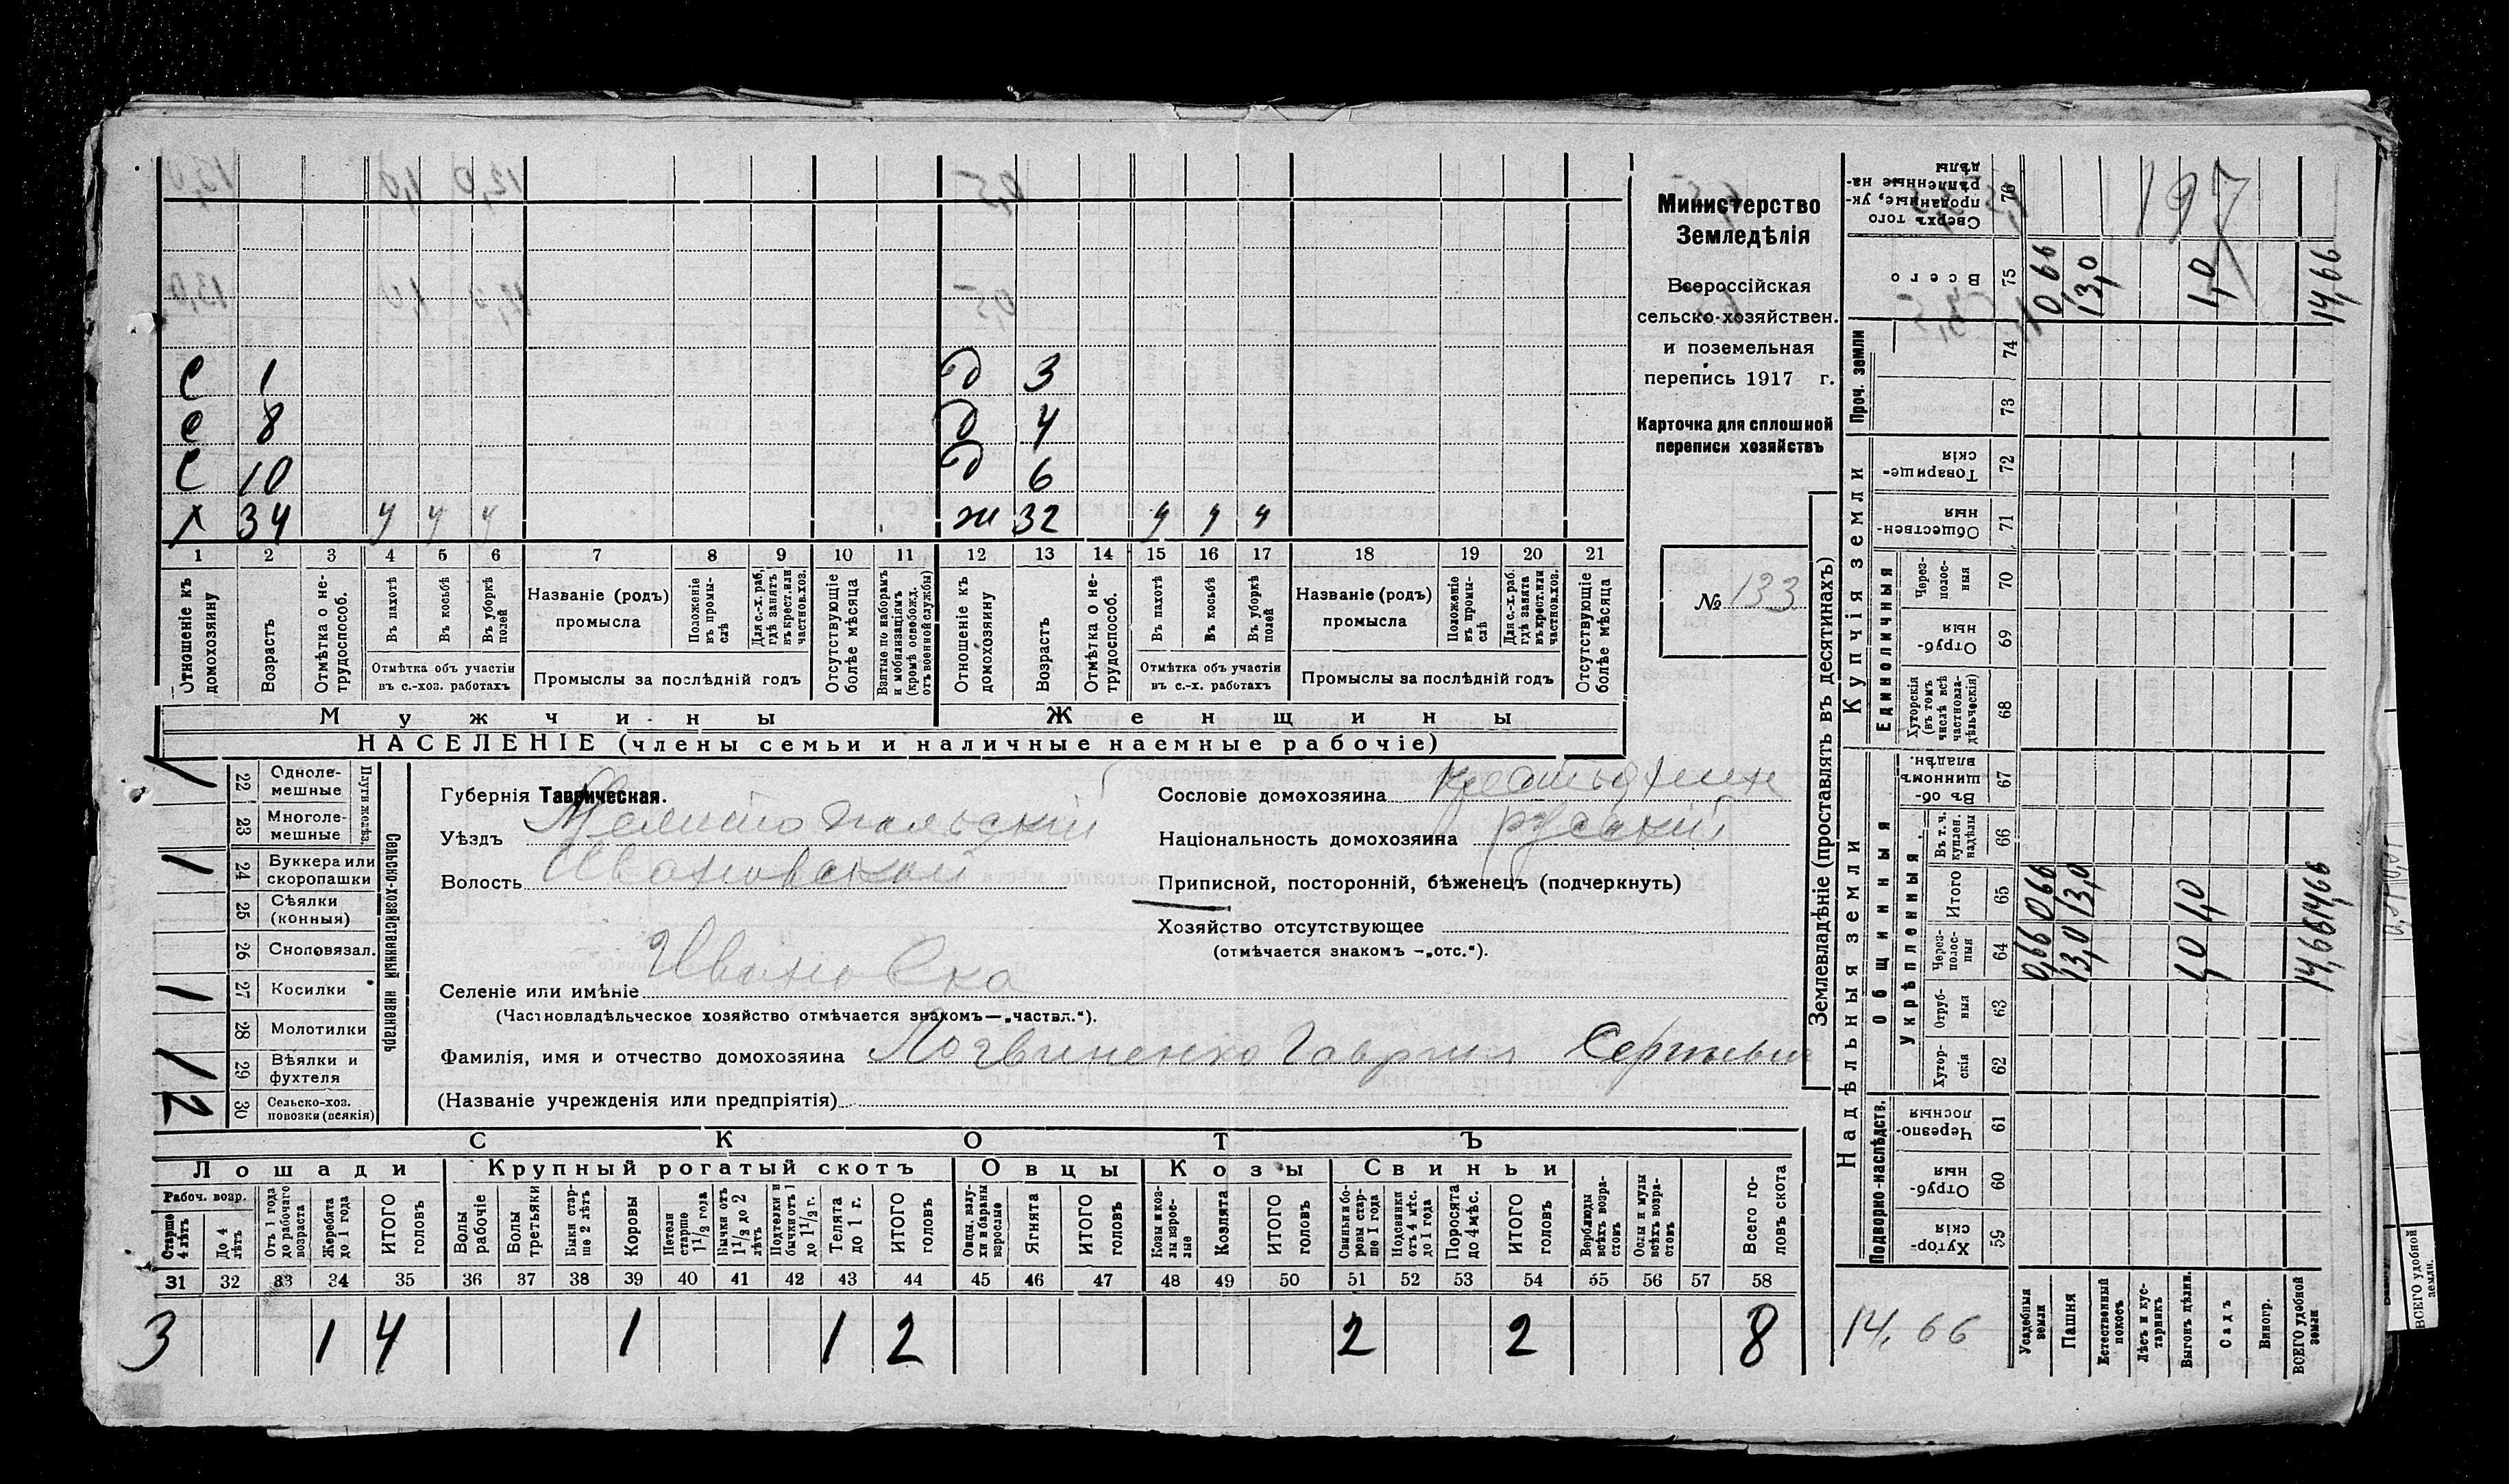 С 1 д 3
С 8 д 4
С 10 д 6
х 34 у у у ж 32 у у у
1 2 3 4 5 6 7 8 9 10 11 12 13 14 15 16 17 18 19 20 21
Отношеніе къ домохозяину
Возрастъ
Отмѣтка о не-трудоспособ.
Въ пахотѣ
Въ косьбѣ
Въ уборкѣ полей
Отмѣтка объ участіи
въ с.-хоз. работахъ
Названіе (родъ)
промысла
Положеніе въ промы-слѣ
Для с.-х. раб. гдѣ занятъ въ крест. или частнов. хоз.
Промыслы за послѣдній годъ
Отсутствующіе болѣе мѣсяца
Взятые по наборамъ и мобилизаціямъ (кромѣ освобожд. отъ военной службы)
Отношеніе къ домохозяину
Возрастъ
Отмѣтка о не-трудоспособ.
Въ пахотѣ
Въ косьбѣ
Въ уборкѣ полей
Отмѣтка объ участіи
въ с.-х. работахъ
Названіе (родъ)
промысла
Положеніе въ промы-слѣ
Для с.-х. раб. гдѣ занята въ крест. или частнов. хоз.
Промыслы за послѣдній годъ
Отсутствующіе болѣе мѣсяца
Мужчины
Женщины
НАСЕЛЕНІЕ (члены семьи и наличные наемные рабочіе)
Министерство
Земледѣлія
Всероссійская
сельско-хозяйствен.
и поземельная
перепись 1917 г.
Карточка для сплошной
переписи хозяйствъ
№ 133
1 22 Однолемешные
23 Многолемешные
1 24 Буккера или скоропашки
25 Сѣялки (конныя)
26 Сноповязал.
1 27 Косилки
28 Молотилки
1 29 Вѣялки и фухтеля
2 30 Сельско-хоз. повозки (всякія)
Сельско-хозяйственный инвентарь
Губернія Таврическая.
Уѣздъ Мелитопольскій
Волость Ивановской
Сословіе домохозяина крестьянин
Національность домохозяина русский
Приписной, посторонній, бѣженецъ (подчеркнуть)
Хозяйство отсутствующее
(отмѣчается знакомъ -„отс.“).
Селеніе или имѣніе Ивановка
(Частновладѣльческое хозяйство отмѣчается знакомъ—„частвл.“).
Фамилія, имя и отчество домохозяина Логвиненко Гавриил Сергѣевич
(Названіе учрежденія или предпріятія)
СКОТЪ
Лошади Крупный рогатый скотъ Овцы Козы Свиньи
Рабоч. возр.
Старше 4 лѣтъ
До 4 лѣтъ
Отъ 1 года до рабочаго возраста
Жеребята до 1 года
ИТОГО головъ
Волы рабочіе
Волы третьяки
Быки старше 2 лѣтъ
Коровы
Нетели старше 1 1/2 года
Бычки отъ 1 1/2 до 2 лѣтъ
Подтелки и бычки отъ 1 до 1 1/2 г.
Телята до 1 г.
ИТОГО головъ
Овцы, валухи и бараны взрослые
Ягнята
ИТОГО головъ
Козы и козлы взрослые
Козлята
ИТОГО головъ
Свиньи и боровы старше 1 года
Подсвинки отъ 4 мѣс. до 1 года
Поросята до 4 мѣс.
ИТОГО головъ
Верблюды всѣхъ возрастовъ
Ослы и мулы всѣхъ возрастовъ
Всего головъ скота
31 32 33 34 35 36 37 38 39 40 41 42 43 44 45 46 47 48 49 50 51 52 53 54 55 56 57 58
3 1 4 1 1 2 2 2 8
Землевладѣніе (проставлять въ десятинахъ)
Надѣльныя земли
Купчія земли
Проч. земли
Подворно-наслѣдств.
Общинныя
Укрѣпленныя
Единоличныя
Сверхъ того проданные, укрѣпленные надѣлы 76
197
Всего 75 0,66 13,0 1,0 14,66
74
73
Товарищескія 72
Общественныя 71
Черезполосныя 70
Отрубныя 69
Хуторскія (въ томъ числѣ всѣ частновладѣльческія) 68
Въ общинномъ владѣн. 67
Въ т. ч. куплен. надѣлы 66
Итого 65 0,66 13,0 1,0 14,66
Черезполосныя 64 0,66 13,0 1,0 14,66
Отрубныя 63
Хуторскія 62
Черезполосныя 61
Отрубныя 60
Хуторскія 59
14,66
Усадебныя земли
Пашня
Естественный покосъ
Лѣсъ и кустарникъ
Выгонъ дѣлим.
Садъ
Виногр.
ВСЕГО удобной земли
ВСЕГО удобной земли.